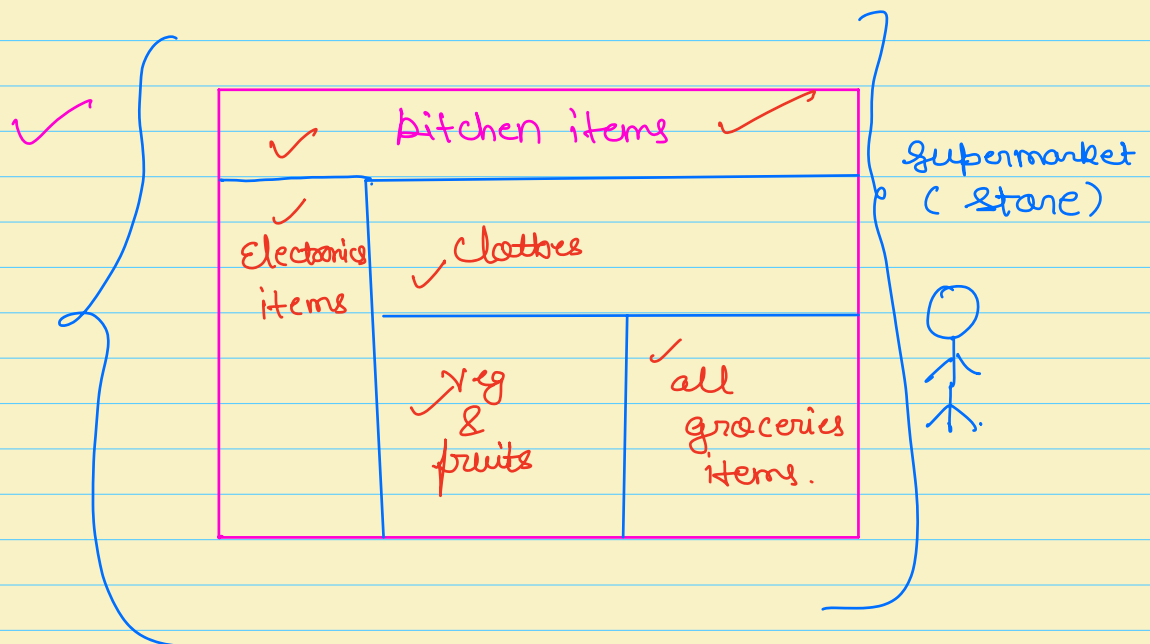 kitchen items
Supermarket
( Store)
Electronics
items
Clothes
veg
&
fruits
all
groceries
items.